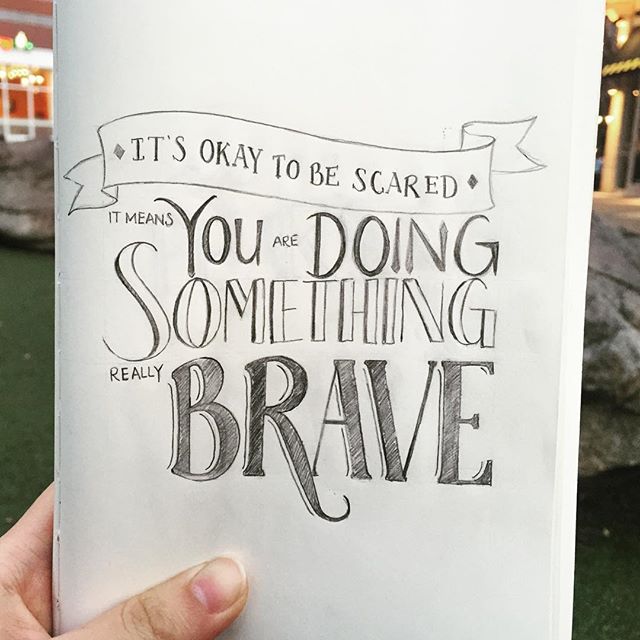 IT'S OKAY TO BE SCARED
IT MEANS YOU ARE DOING
SOMETHING
REALLY BRAVE